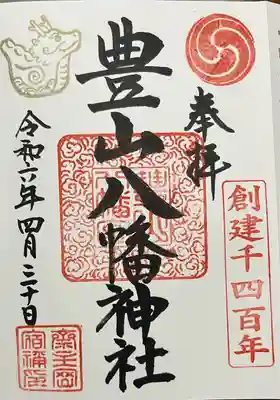 奉拝
創建千四百年
豊山八幡神社
令和六年四月三十日